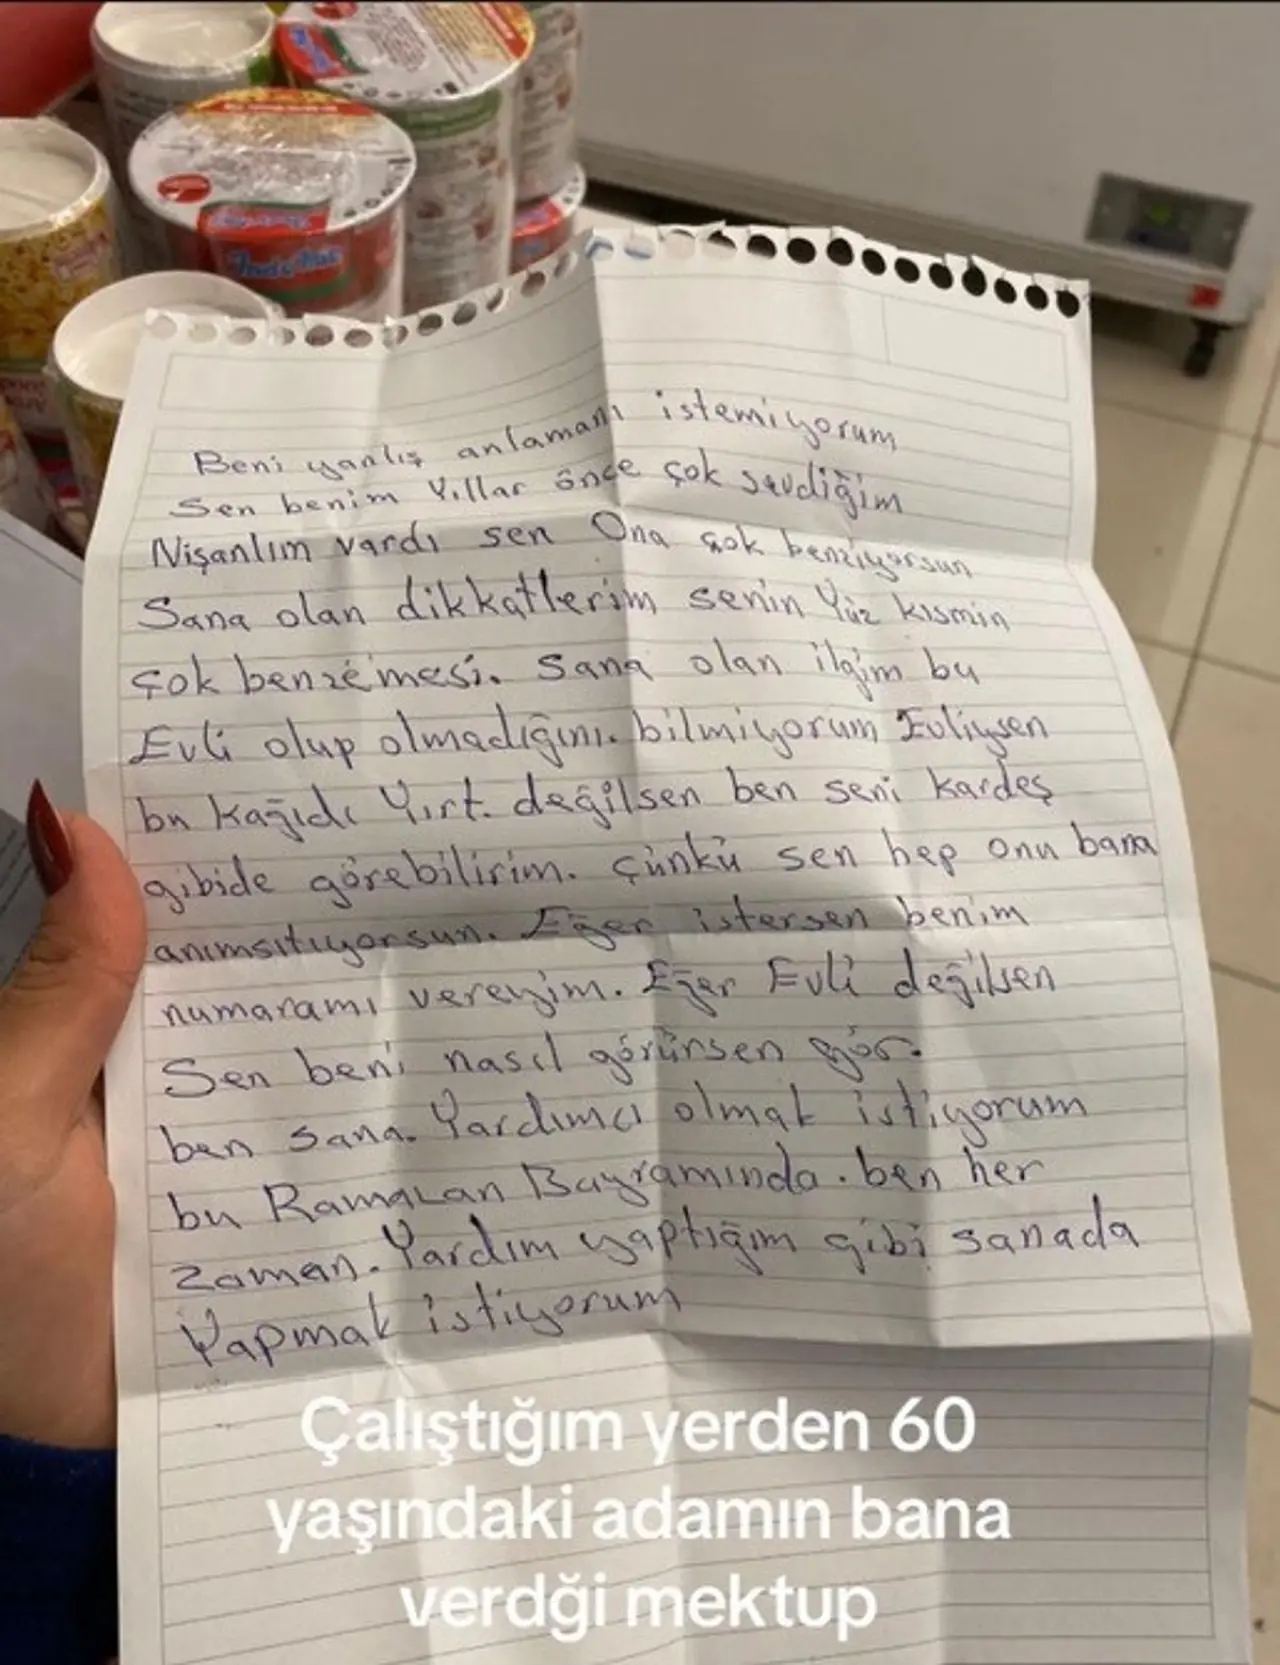 Indo Mie
Beni yanlış anlamanı istemiyorum
Sen benim Yıllar önce çok sevdiğim
Nişanlım vardı sen Ona çok benziyorsun
Sana olan dikkatlerim senin Yüz kısmin
çok benzemesi. Sana olan ilgim bu
Evli olup olmadığını. bilmiyorum Evliysen
bu kağıdı Yırt. değilsen ben seni kardeş
gibide görebilirim. Çünkü sen hep onu bana
anımsıtıyorsun. Eğer istersen benim
numaramı vereyim. Eğer Evli değilsen
Sen beni nasıl görürsen gör.
ben sana. Yardımcı olmak istiyorum
bu Ramazan Bayramında. ben her
zaman. Yardım yaptığım gibi sanada
Yapmak istiyorum
Çalıştığım yerden 60
yaşındaki adamın bana
verdği mektup